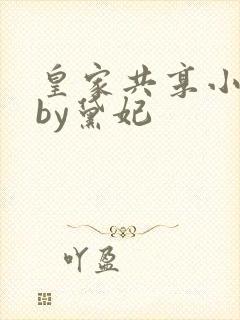 皇家共享小
by黛妃
吖盈